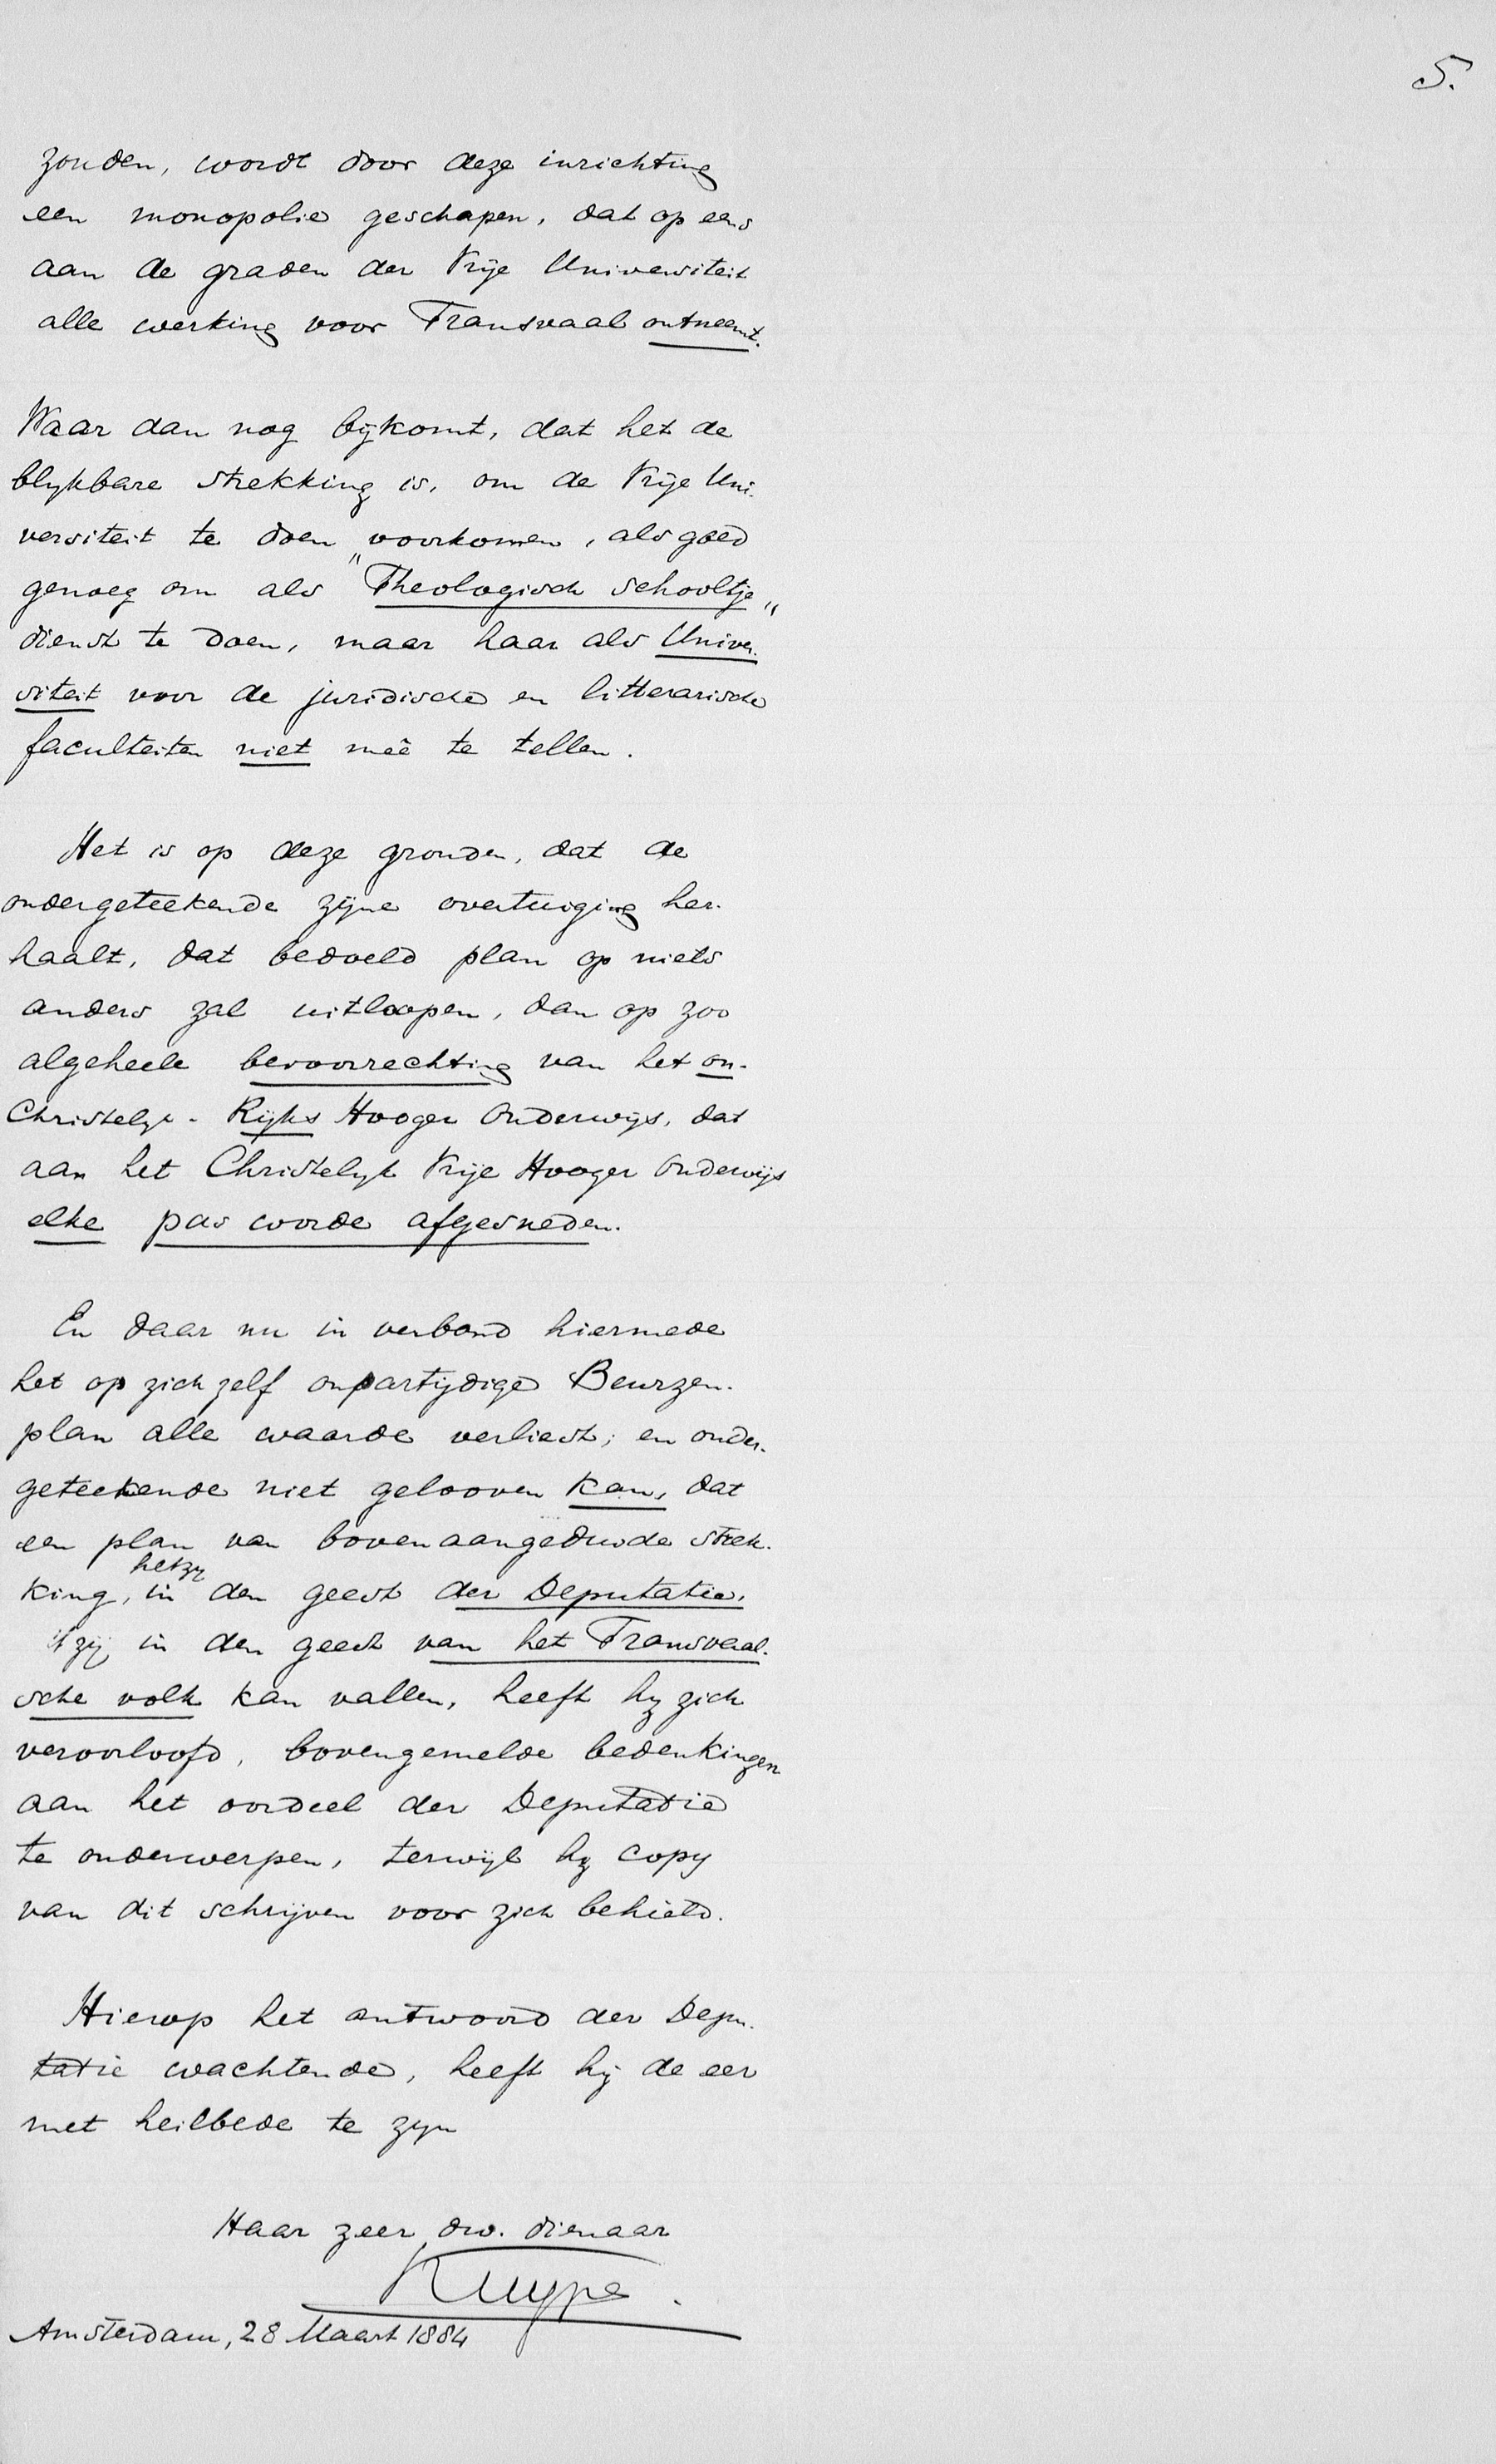 5.
zouden, wordt door deze inrichting
een monopolie geschapen, dat op eens
aan de graden der Vrije Universiteit
alle werking voor Transvaal ontneemt.
Waar dan nog bijkomt, dat het de
blykbare strekking is, om de Vrije Uni-
versiteit te doen voorkomen, als goed
genoeg om als "Theologisch schooltje"
dienst te doen, maar haar als Univer-
siteit voor de juridische en litterarische
faculteiten niet meê te tellen.
Het is op deze gronden, dat de
ondergeteekende zijne overtuiging her-
haalt, dat bedoeld plan op niets
anders zal uitloopen, dan op zoo
algeheele bevoorrechting van het on-
Christelyk-Rijks Hooger Onderwijs, dat
aan het Christelyk Vrije Hooger Onderwijs
elke pas worde afgesneden.
En daar nu in verband hiermede
het op zich zelf onpartijdige Beurzen-
plan alle waarde verliest; en onder-
geteekende niet gelooven kan, dat
een plan van boven aangeduide strek-
king, hetzy in den geest der Deputatie,
't zij in den geest van het Transvaal-
sche volk kan vallen, heeft hy zich
veroorloofd, bovengemelde bedenkingen
aan het oordeel der Deputatie
te onderwerpen, terwijl hy copy
van dit schrijven voor zich behield.
Hierop het antwoord der Depu-
tatie wachtende, heeft hij de eer
met heilbede te zyn
Haar zeer dw. dienaar
Kuyper.
Amsterdam, 28 Maart 1884